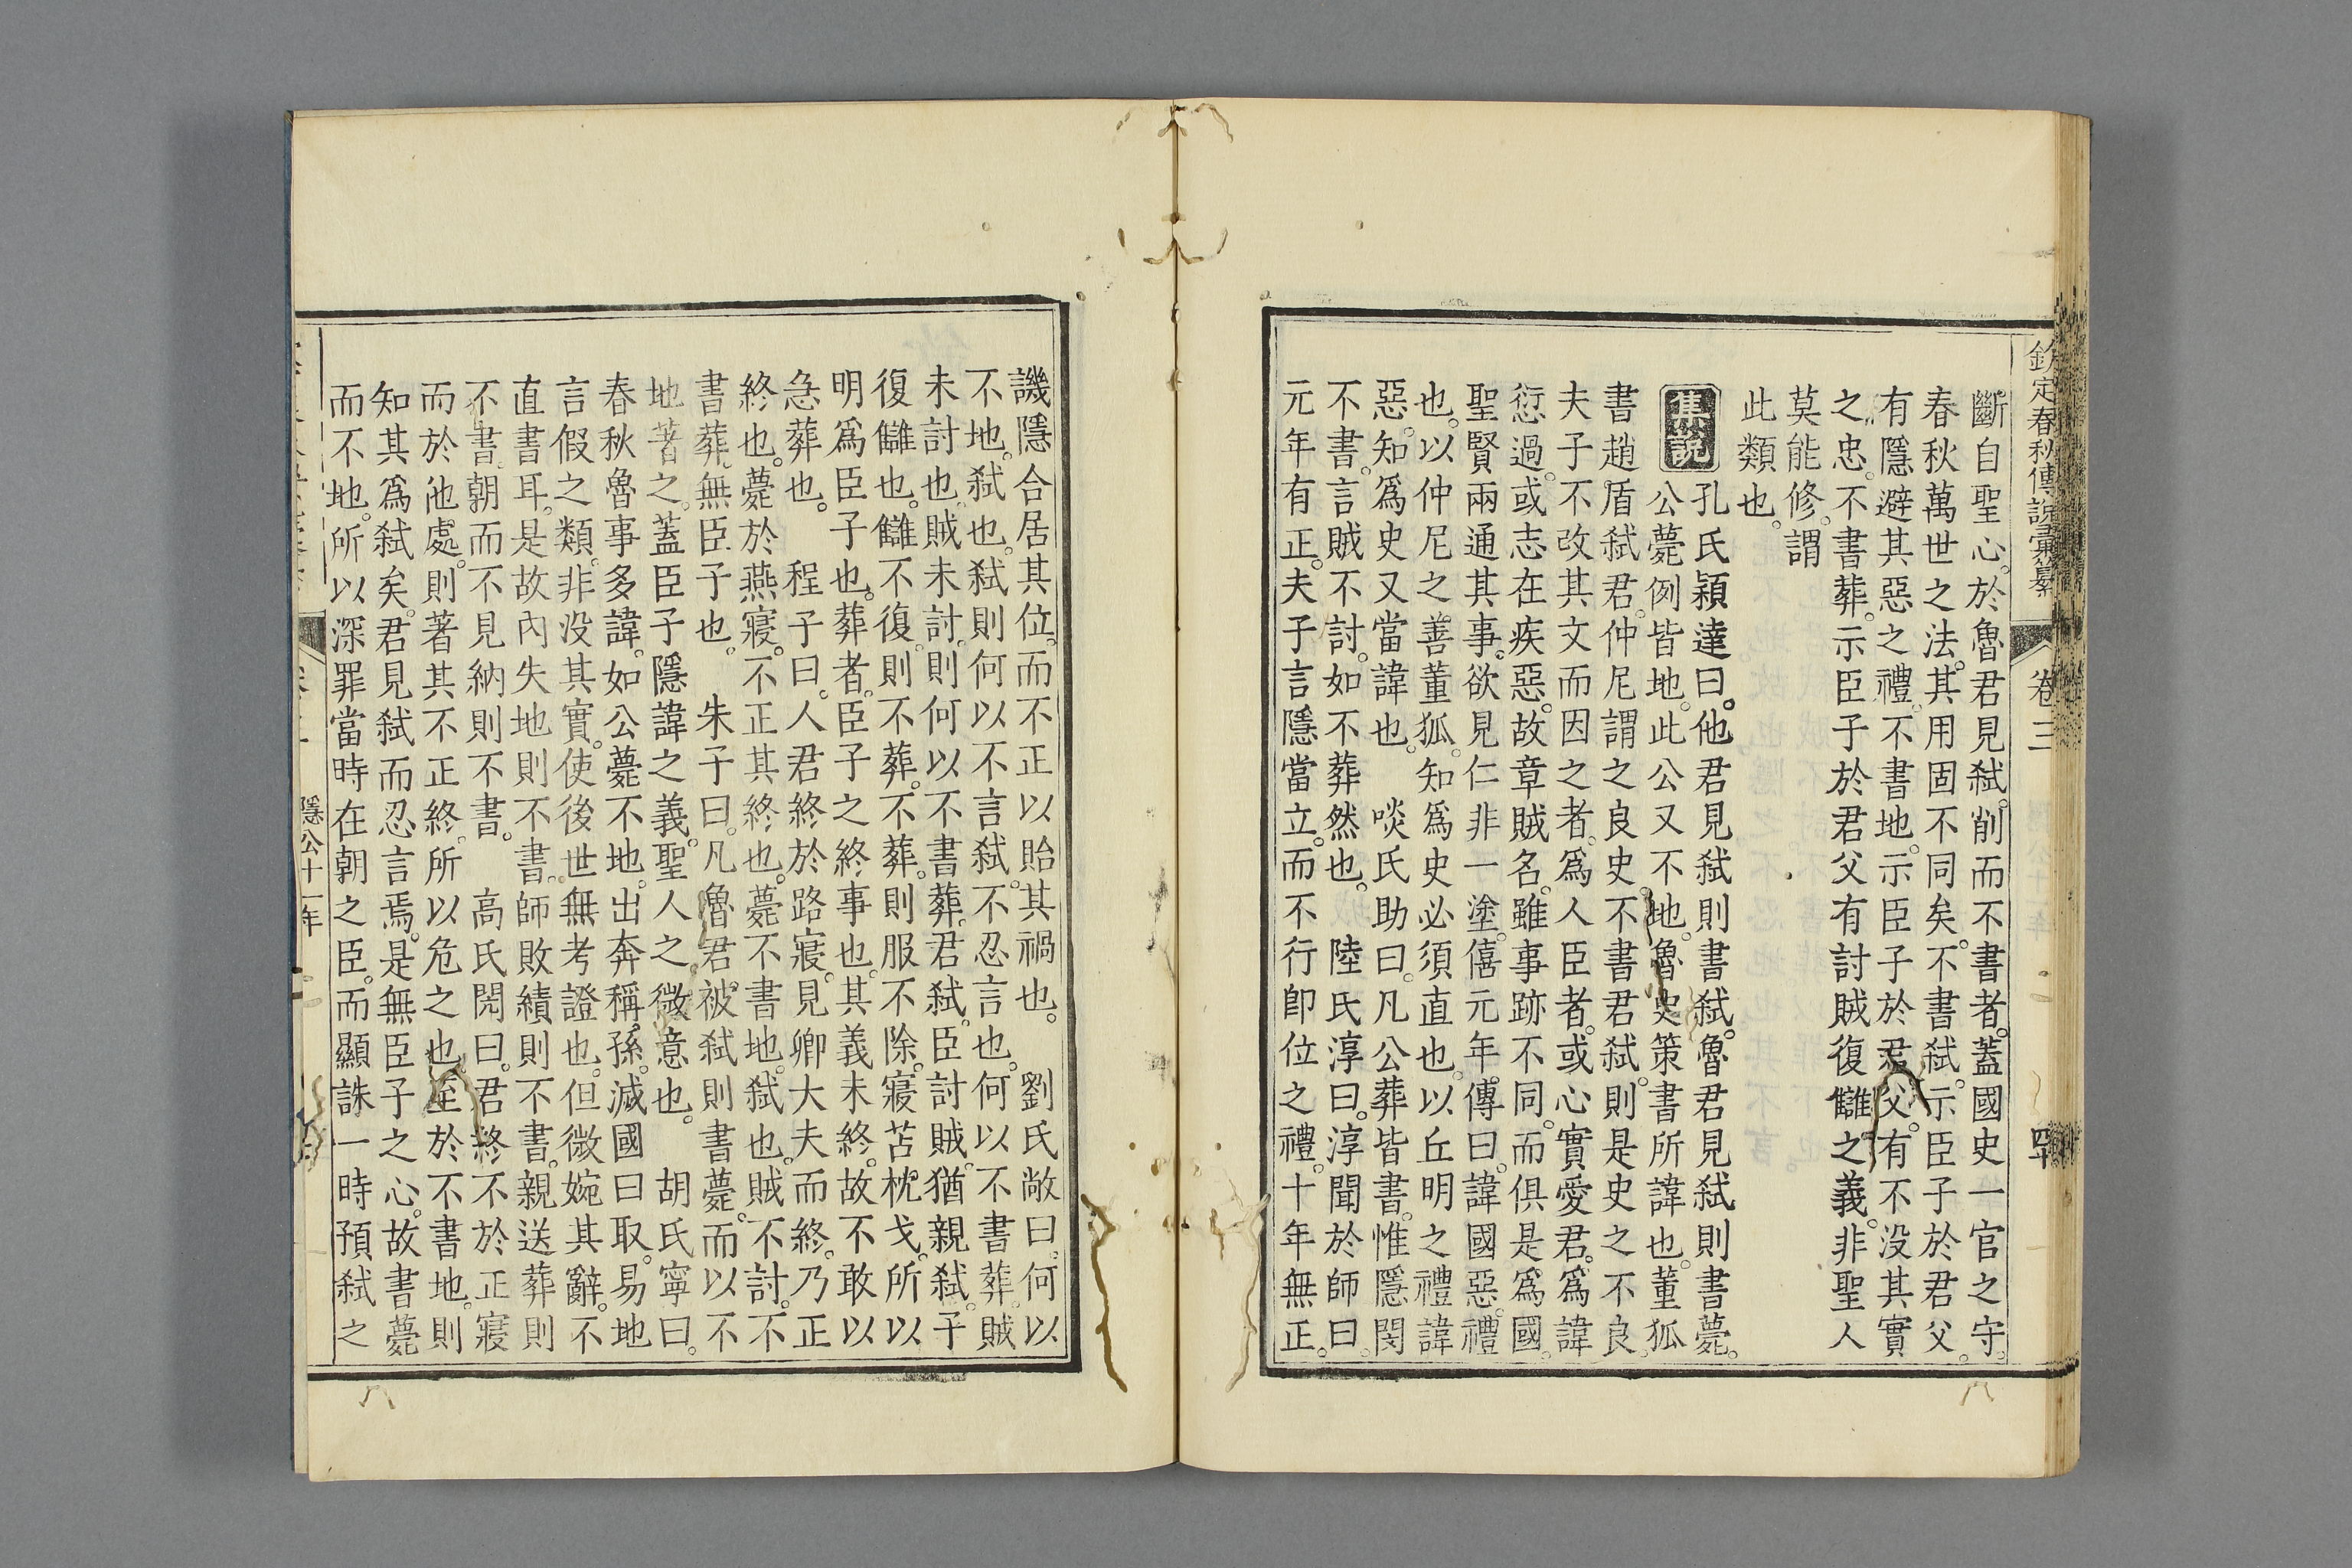 欽定春秋傳說彙纂 卷三 四
斷自聖心。於魯君見弒。削而不書者。蓋國史一官之守。
春秋萬世之法。其用固不同矣。不書弒。示臣子於君父。
有隱避其惡之禮。不書地。示臣子於君父。有不沒其實
之忠。不書葬。示臣子於君父有討賊復讎之義。非聖人
莫能修。謂
此類也。
集說 孔氏穎達曰。他君見弒則書弒。魯君見弒則書薨。
公薨例皆地。此公又不地。魯史策書所諱也。董狐
書趙盾弒君。仲尼謂之良史。不書君弒。則是史之不良。
夫子不改其文而因之者。爲人臣者。或心實愛君。爲諱
愆過。或志在疾惡。故章賊名。雖事跡不同。而俱是爲國。
聖賢兩通其事。欲見仁非一塗。僖元年。傳曰。諱國惡。禮
也。以仲尼之善董狐。知爲史必須直也。以丘明之禮諱
惡。知爲史又當諱也。 啖氏助曰。凡公葬皆書。惟隱閔
不書。言賊不討。如不葬然也。 陸氏淳曰。淳聞於師曰。
元年有正。夫子言隱當立。而不行卽位之禮。十年無正。
譏隱合居其位。而不正以貽其禍也。 劉氏敞曰。何以
不地。弒也。弒則何以不言弒。不忍言也。何以不書葬。賊
未討也。賊未討。則何以不書葬。君弒。臣討賊。猶親弒。子
復讎也。讎不復。則不葬。不葬。則服不除。寢苫枕戈。所以
明爲臣子也。葬者。臣子之終事也。其義未終。故不敢以
急葬也。 程子曰。人君終於路寢。見卿大夫而終。乃正
終也。薨於燕寢。不正其終也。薨不書地。弒也。賊不討。不
書葬。無臣子也。 朱子曰。凡魯君被弒則書薨。而以不
地著之。蓋臣子隱諱之義。聖人之微意也。 胡氏寧曰。
春秋魯事多諱。如公薨不地。出奔稱孫。滅國曰取。易地
言假之類。非沒其實。使後世無考證也。但微婉其辭。不
直書耳。是故內失地則不書。師敗績則不書。親送葬則
不書。朝而不見納則不書。 高氏閌曰。君終不於正寢
而於他處。則著其不正終。所以危之也。至於不書地。則
知其爲弒矣。君見弒而忍言焉。是無臣子之心。故書薨
而不地。所以深罪當時在朝之臣。而顯誅一時預弒之
隱公十一年